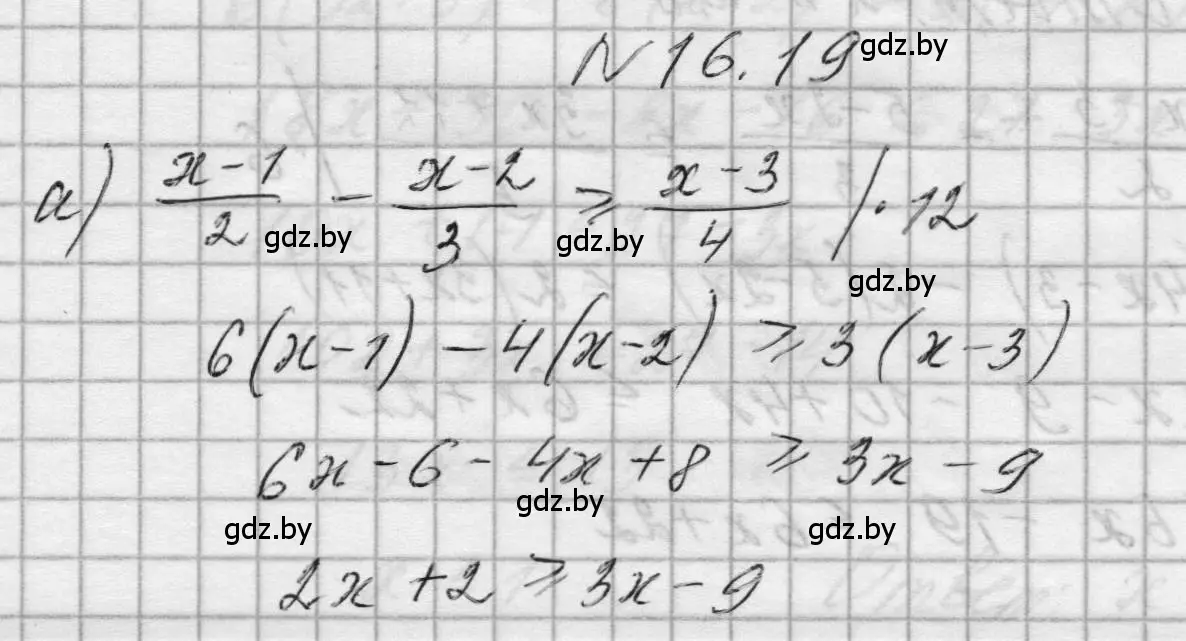 N 16.19 gdz.by
а) (x-1)/2 - (x-2)/3 ⩾ (x-3)/4 |·12
gdz.by gdz.by gdz.by
6(x-1) - 4(x-2) ⩾ 3(x-3)
6x - 6 - 4x + 8 ⩾ 3x - 9
gdz.by gdz.by gdz.by
2x + 2 ⩾ 3x - 9